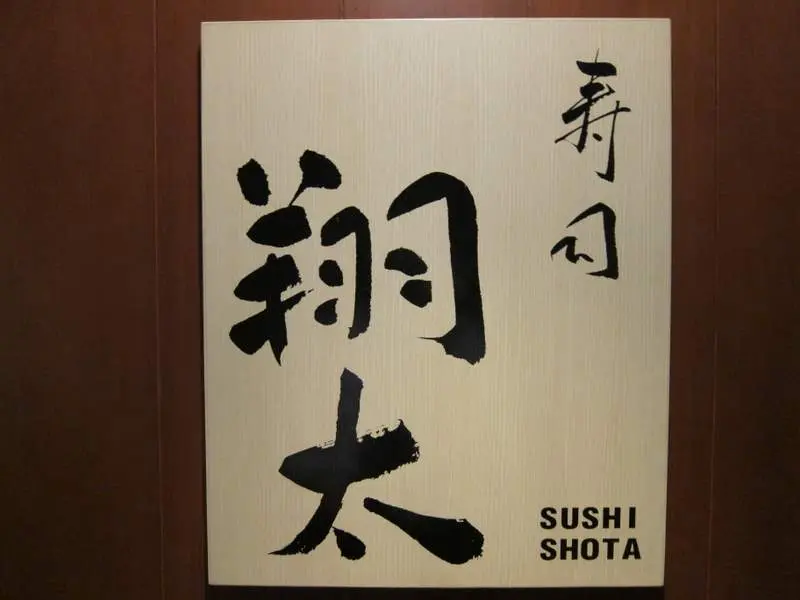 寿司
翔太
SUSHI
SHOTA